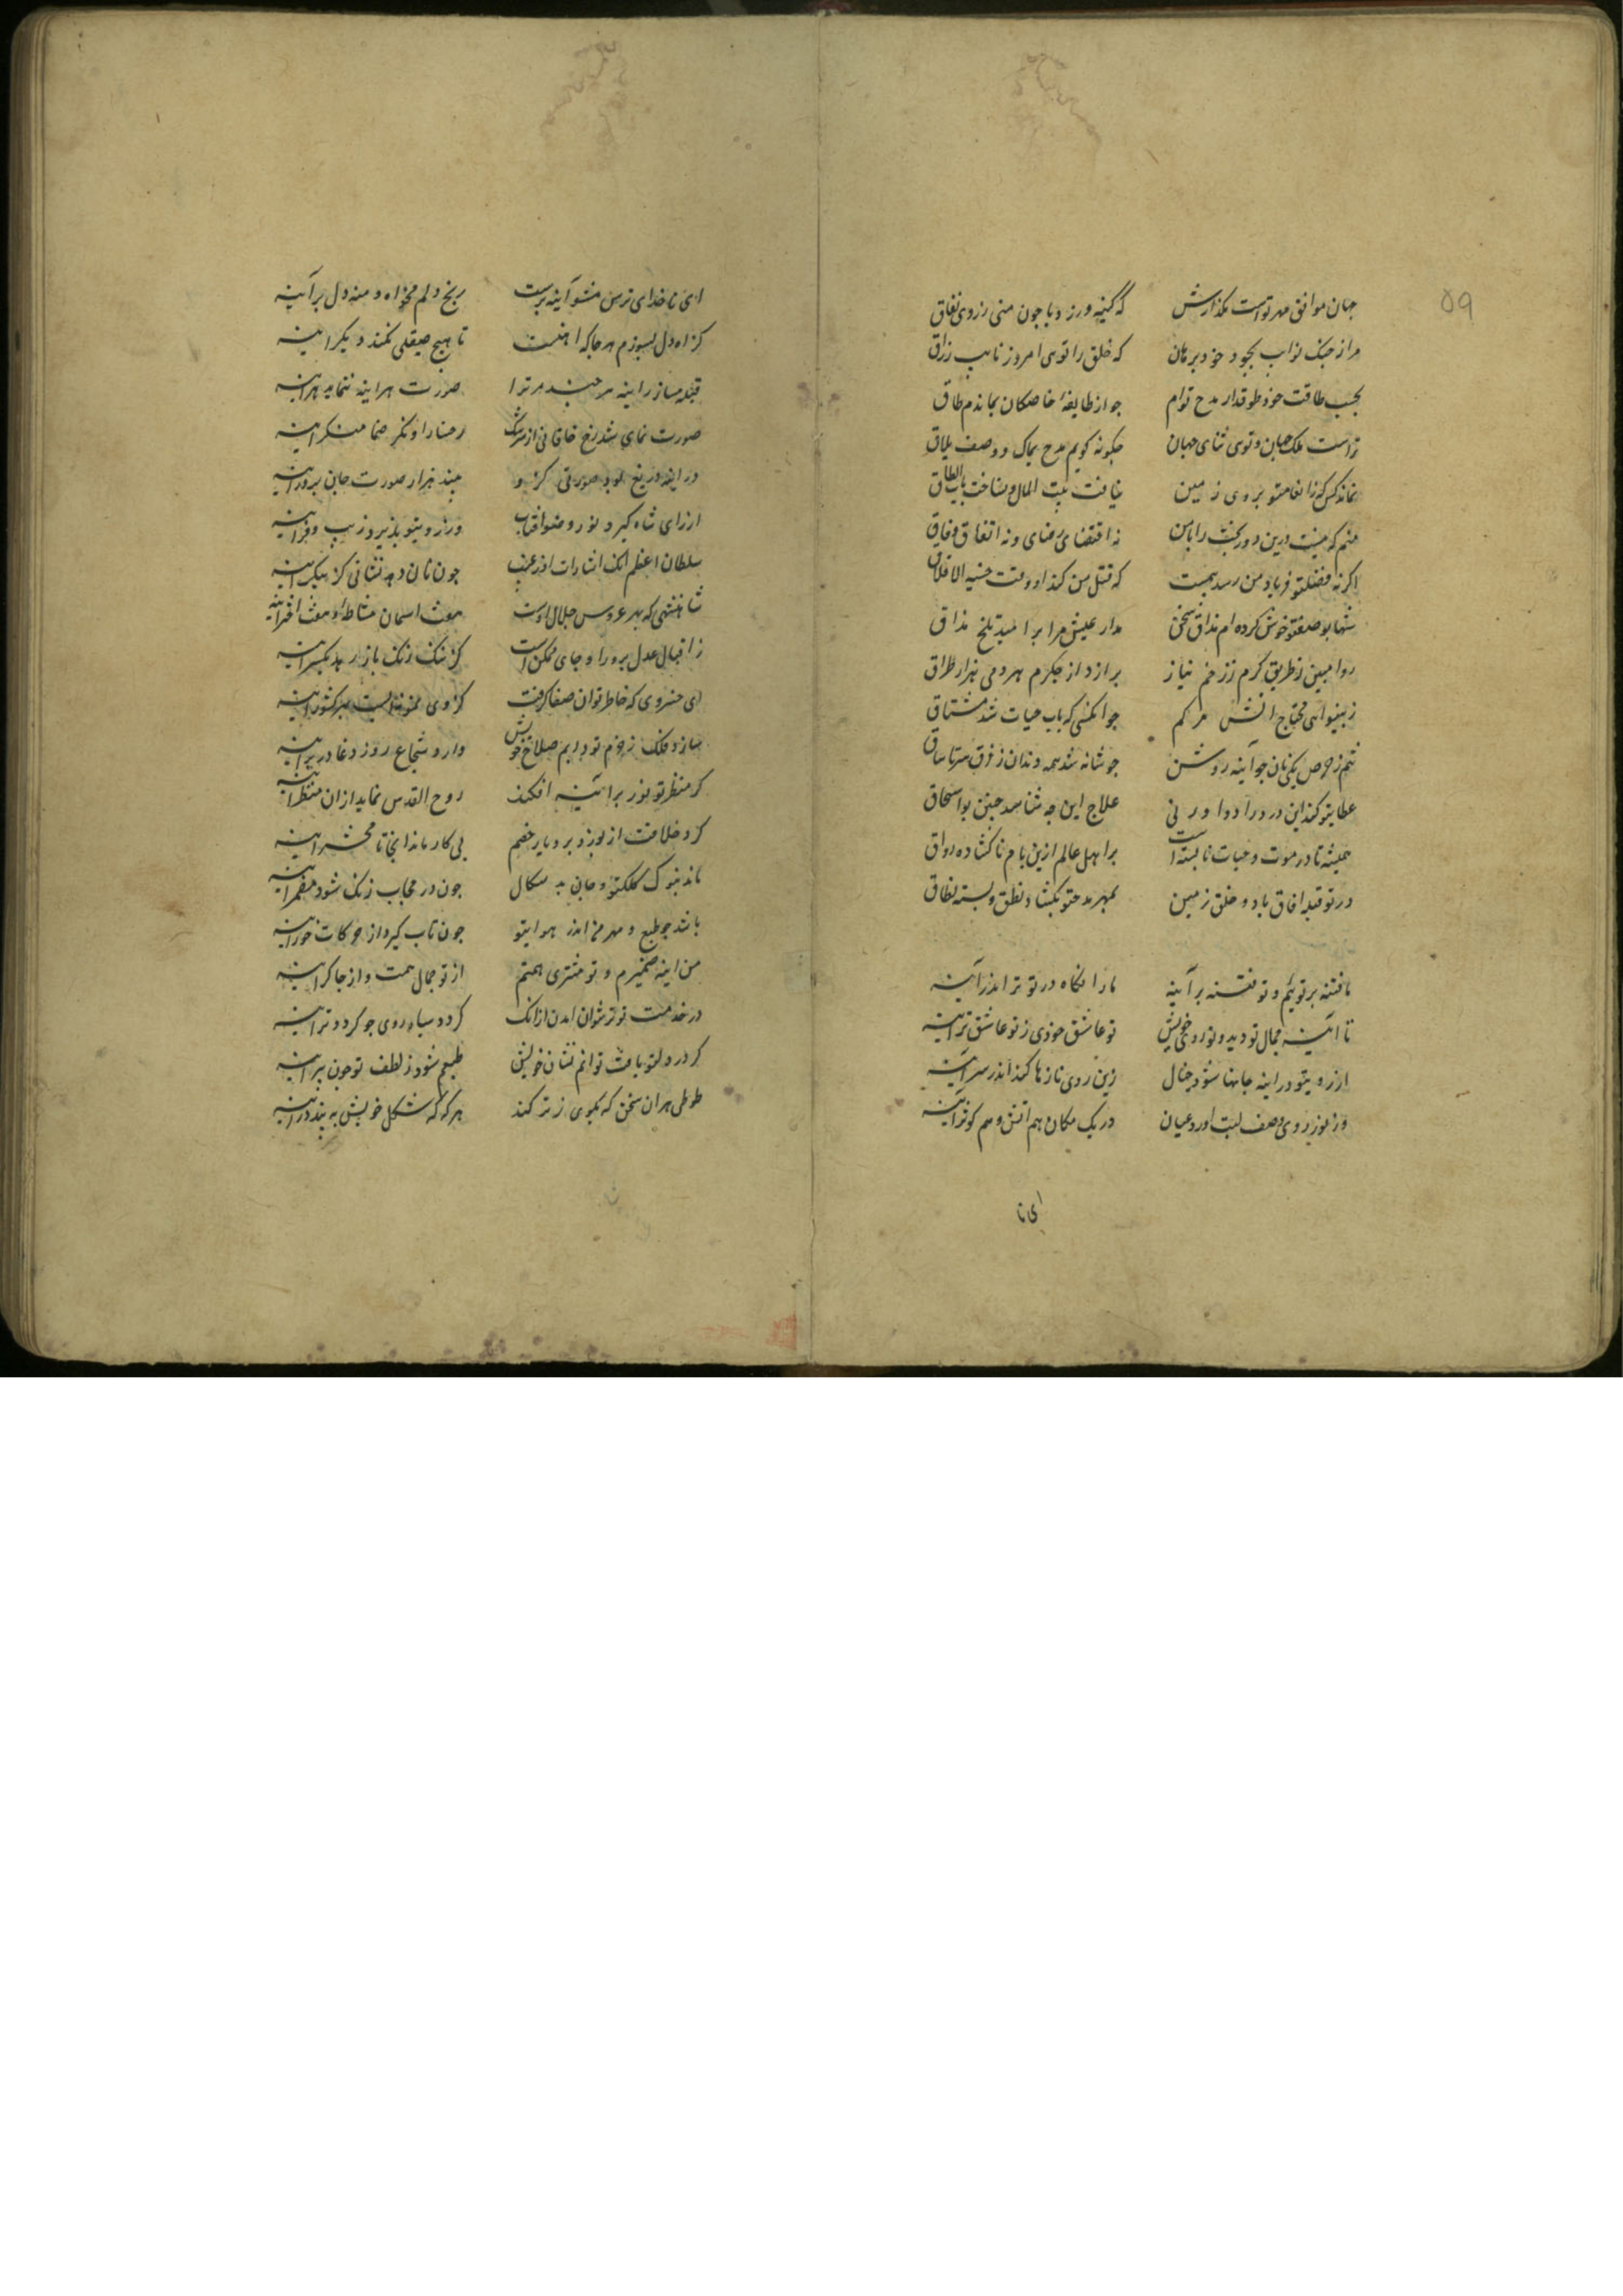 ۵۹
جهان موافق مهر تو است مگذارش که کینه ورزد با چون منی ز روی نفاق
مرا ز جنک نواب بجود خود برهان که خلق را توی امروز نایب رزاق
بجیب طاقت خود طوقدار مدح توام جو از طایفهٔ خاصکان بماندم طاق
تراست ملک جهان و توی ثنای جهان چکونه کویم مدح یماک و وصف یلاق
نماند کس که ز انعامتو بروی زمین نیافت بیت المال و نساخت باب الطاق
منم که نیست درین دور بخت را با من نه اقتضای رضای و نه اتفاق وفاق
اکر نه فضلتو فریاد من رسد بیمست که قتل من کند او وقت خشیه الاملاق
شها بوصفتو خوش کرده ام مذاق سخن مدار عیش مرا بر امید تلخ مذاق
روا مبین ز طریق کرم ز زخم نیاز برآرد از جکرم هر دمی هزار طراق
ز بینوایی محتاج آنشم مرکم جو آنکسی که باب حیات شد مشتاق
تنم ز حرص یکی نان جو آینه روشن جو شانه شد همه دندان ز فرق سر تا ساق
عطایتو کند این درد را دوا ورنی علاج این چه شناسد حنین بو اسحاق
همیشه تا در موت و حیات نابسته است بر اهل عالم ازین بام ناکشاده رواق
در تو قبله افاق باد و خلق زمین بمهر مدحتو بکشاد نطق و بسته نطاق
ما فتنه بر توئیم و تو فتنه بر آینه ما را نکاه در تو ترا اندر آینه
تا آینه جمال تو دید و تو روی خویش تو عاشق خودی ز تو عاشق تر آینه
از رویتو در اینه جانها شود خیال زین روی نازها کند اندر سر آینه
وز نور روی وصف لبت اورد عیان در یک مکان هم آتش و هم کوثر آینه
ای نا
ای ناخدای ترس مشو آینه پرست رنج دلم مخواه و منه دل بر آینه
کز آه دل بسوزم هر جا که آهنست تا هیچ صیقلی نکند دیکر آینه
قبله مساز ز اینه هر چند مر ترا صورت هر اینه ننماید هر آینه
صورت نمای شد رخ خاقانی از سرشک رخسار او نکر صنما منکر آینه
در اینه دریغ بود صورتی کزو چند هزار صورت جان پرور آینه
از رای شاه کیرد نور و ضیا آفتاب وز رویتو پذیرد زیب و فر آینه
سلطان اعظم آنک اشارات او ز غیب چون آن دهد نشانی کز پیکر آینه
شاهنشهی که بهر عروس جلال اوست هفت اسمان مشاطه و هفت اختر آینه
ز اقبال عدل پرور او جای ممکن است کز ننک زنک باز رهد یکسر آینه
ای خسروی که خاطر تو آن صفا کرفت کز وی نمونه ایست بهر کشور آینه
سازد فلک ز حزم تو دایم صلاح خویش دارد شجاع روز وغا در بر آینه
کر منظر تو نور بر آینه افکند روح القدس نماید از آن منظر آینه
کرد خلافت از بوزد بر دیار خصم بی کار ماند آنجا تا محشر آینه
ماند بنوک کلکتو و جان بد سکال جون در حجاب زنک شود مضمر آینه
باشد جو طبع و مهر من اندر هوایتو جون تاب کیرد از حرکات خور آینه
من اینه ضمیرم و تو مشتری همتم از تو جمال همت و از چاکر آینه
در خدمت تو تر نتوان امدن از آنک کردد سیاه روی جو کردد تر آینه
کر در دلتو یافت توانم نشان خویش طبعم شود ز لطف تو جون پر آینه
طوطی هر آن سخن که بکوی ز بر کند هر که که شکل خویش به بیند در آینه